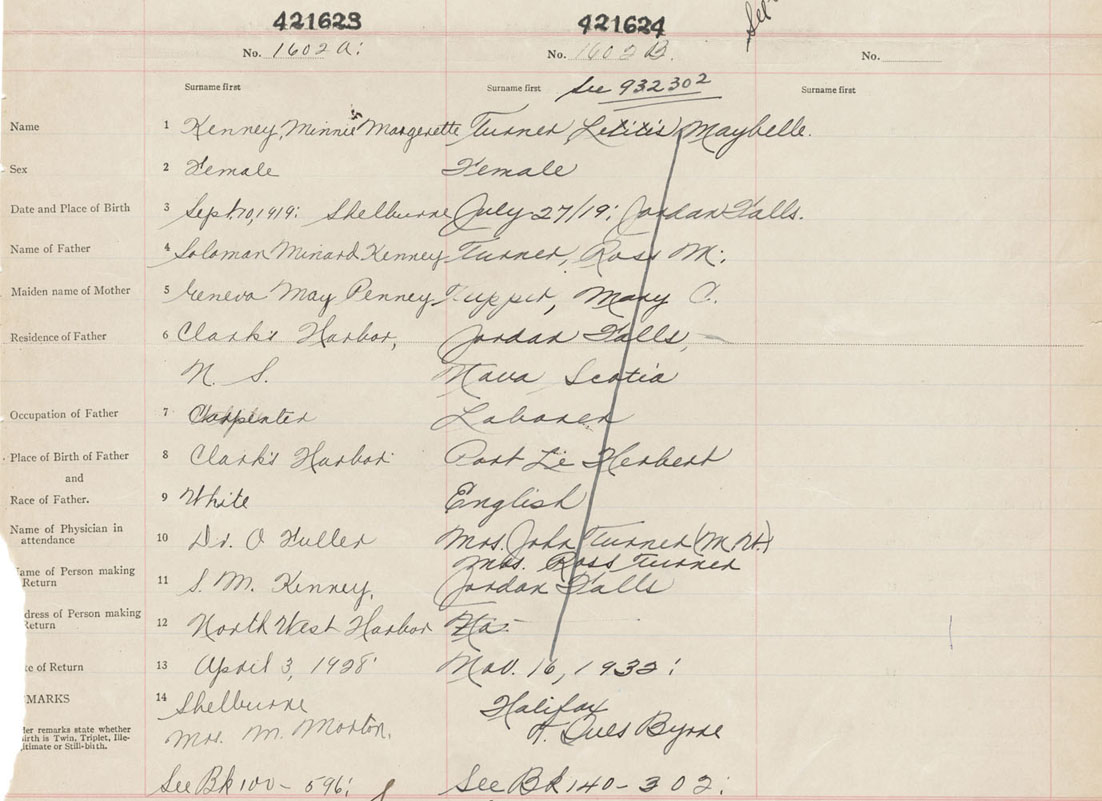 421623 421624
No. 1602 A. No. 1602 B. No.
Surname first Surname first See 932302 Surname first
Name 1 Kenney, Minnie Margerette Turner Maybelle.
Sex 2 Female Female
Date and Place of Birth 3 Sept. 10, 1919: Shelburne July 27/19; Jordan Falls.
Name of Father 4 Soloman Minard Kenney Turner, Ross M.
Maiden name of Mother 5 Geneva May Penney Mary C.
Residence of Father 6 Clark's Harbor, Jordan Falls,
N. S. Nova Scotia
Occupation of Father 7 Carpenter Laborer
Place of Birth of Father 8 Clark's Harbor Port Le Herbert
and
Race of Father. 9 White English
Name of Physician in
attendance 10 Dr. O Fuller Mrs. John Turner
Mrs. Ross Turner
ame of Person making
Return 11 S. M. Kenney, Jordan Falls
dress of Person making
Return 12 North West Harbor
te of Return 13 April 3, 1928 Nov. 16, 1932:
MARKS 14 Shelburne Halifax
Mrs. M. Morton. Byrne
er remarks state whether
irth is Twin, Triplet, Ille-
itimate or Still-birth.
See Bk 100 - 596; See Bk 140 - 302: